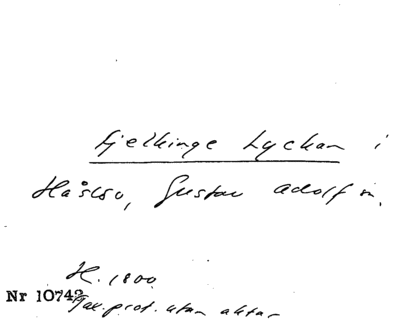 Fjelkinge Lyckan i
Håslöv, Gustav Adolf m.
H. 1800
Nr 10742
prot. utan aktar